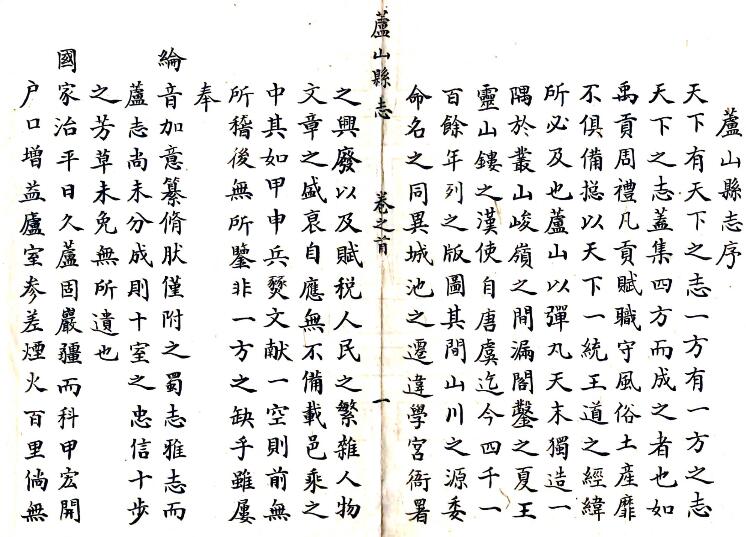 蘆山縣志序
天下有天下之志一方有一方之志
天下之志蓋集四方而成之者也如
禹貢周禮凡貢賦職守風俗土產靡
不俱備捴以天下一統王道之經緯
所必及也蘆山以彈丸天末獨造一
隅於叢山峻嶺之間漏閣鑿之夏王
靈山鏤之漢使自唐虞迄今四千一
百餘年列之版圖其間山川之源委
命名之同異城池之遷違學宮衙署
蘆山縣志
卷之首
一
之興廢以及賦税人民之繁雜人物
文章之盛衰自應無不備載邑乘之
中其如甲申兵燹文献一空則前無
所稽後無所鑒非一方之缺乎雖屢
奉
綸音加意纂脩肰僅附之蜀志雅志而
蘆志尚未分成則十室之忠信十步
之芳草未免無所遺也
國家治平日久蘆固巖疆而科甲宏開
户口增益廬室參差煙火百里倘無